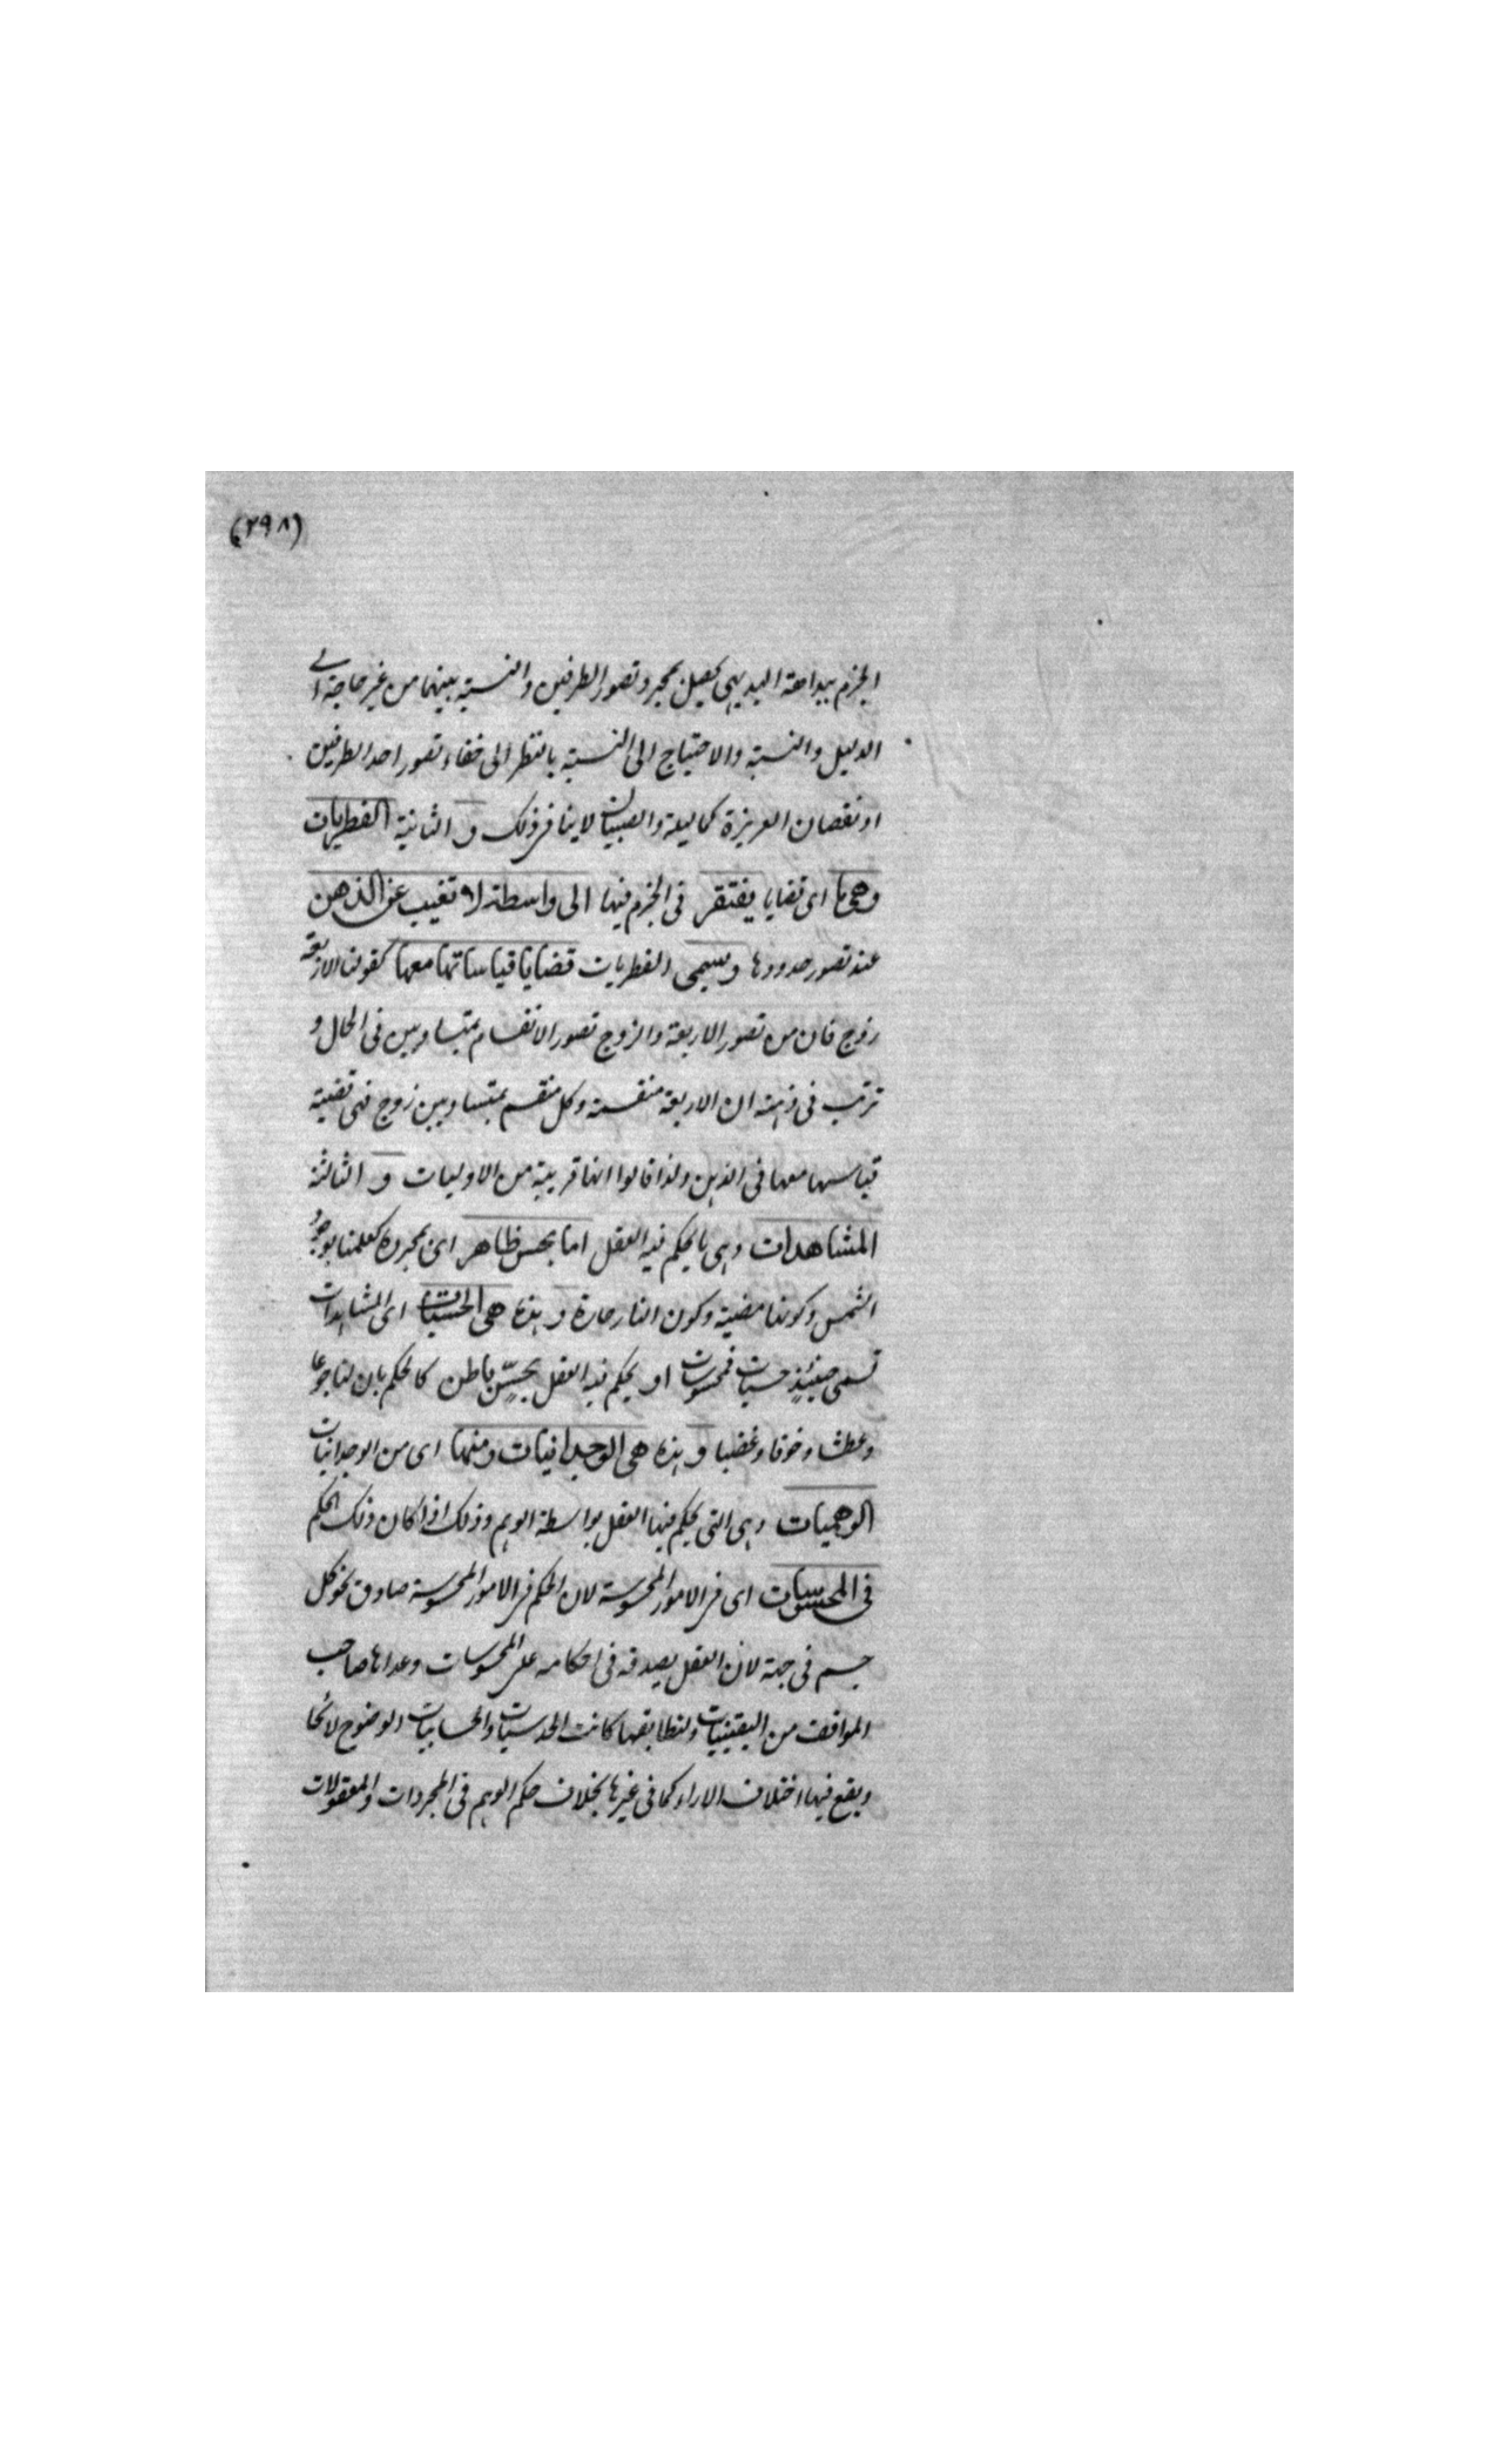 (٢٩٨)
الجزم ببداهة البديهى يحصل بمجرد تصور الطرفين والنسبة بينهما من غير حاجة الى
الدليل والنسبة والاحتياج الى النسبة بالنظر الى خفاء تصور احد الطرفين
او نقصان الغريزة كما لبله والصبيان لا ينافى ذلك و الثانية الفطريات
وهى ما اى قضايا يفتقر فى الجزم فيها الى واسطة لا تغيب عن الذهن
عند تصور حدودها ويسمى الفطريات قضايا قياساتها معها كقولنا الاربعة
زوج فان من تصور الاربعة والزوج تصور الانقسام بمتساويين فى الحال و
ترتب فى ذهنه ان الاربعة منقسمة وكل منقسم بمتساويين زوج فهى قضية
قياسها معها فى الذهن ولذا قالوا انها قريبة من الاوليات و الثالثة
المشاهدات وهى ما يحكم فيه العقل اما بحس ظاهر اى بمجرده كعلمنا بوجود
الشمس وكونها مضيئة وكون النار حارة و هذه هى الحسيات اى المشاهدات
تسمى حينئذ حسيات ومحسوسات او يحكم فيه العقل بحسّ باطن كالحكم بان لنا جوعا
وعطشا وخوفا وغضبا و هذه هى الوجدانيات ومنها اى من الوجدانيات
الوهميات وهى التى يحكم فيها العقل بواسطة الوهم وذلك اذا كان ذلك الحكم
فى المحسوسات اى فى الامور المحسوسة لان الحكم فى الامور المحسوسة صادق نحو كل
جسم فى جهة لان العقل يصدقه فى احكامه على المحسوسات وعداها صاحب
المواقف من اليقينيات ولتطابقها كانت الحدسيات والحسابيات الوضوح لائحا
ويقع فيها اختلاف الاراء كما فى غيرها بخلاف حكم الوهم فى المجردات والمعقولات